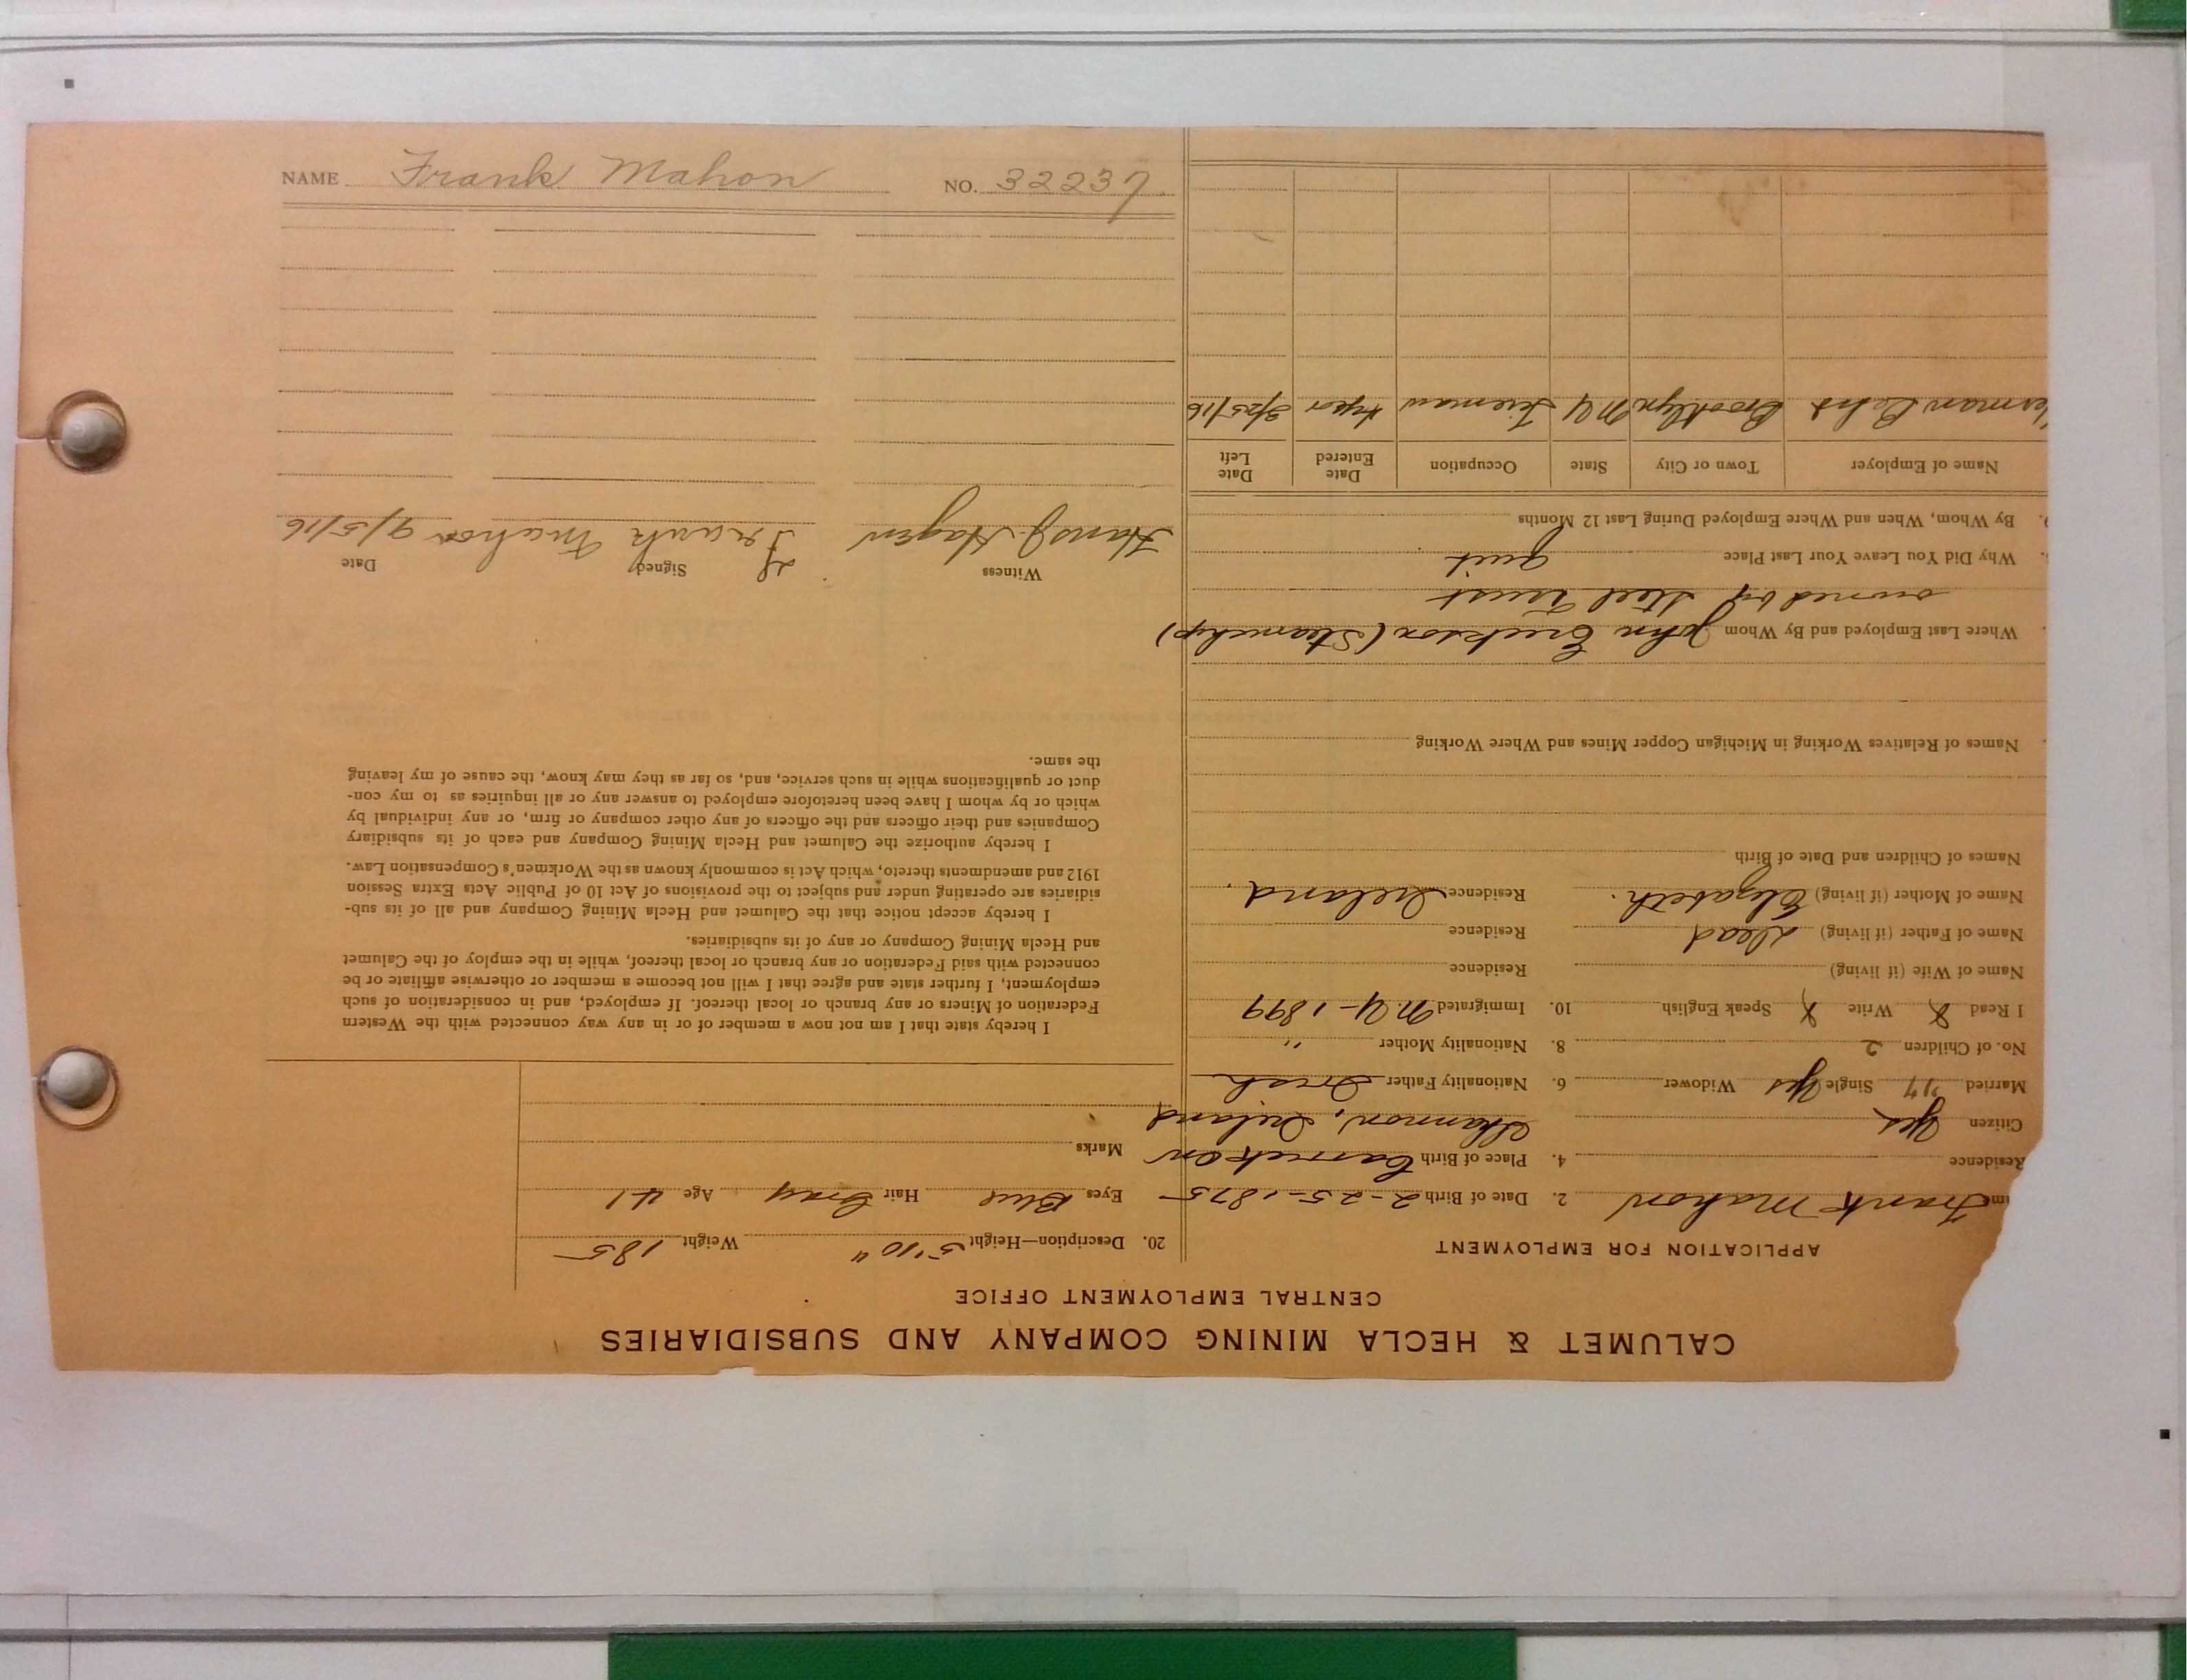 NAME Frank Mahon NO. 32237
CALUMET & HECLA MINING COMPANY AND SUBSIDIARIES
CENTRAL EMPLOYMENT OFFICE
APPLICATION FOR EMPLOYMENT
Frank Mahon 2. Date of Birth 2-25-1875
Residence 4. Place of Birth Carrick on
Shannon, Ireland
Citizen Yes
Married Single Yes Widower 6. Nationality Father Irish
No. of Children 2 8. Nationality Mother "
I Read Write Speak English 10. Immigrated N.Y-1899
Name of Wife (if living) Residence
Name of Father (if living) Dead Residence
Name of Mother (if living) Elizabeth. Residence Ireland.
Names of Children and Date of Birth
Names of Relatives Working in Michigan Copper Mines and Where Working
Where Last Employed and By Whom John Erickson (Steamship)
owned by Steel Trust
Why Did You Leave Your Last Place quit
9. By Whom, When and Where Employed During Last 12 Months
Name of Employer Town or City State Occupation Date Entered Date Left
Brooklyn NY Fireman 3/25/16
20. Description—Height 5'10" Weight 185
Eyes Blue Hair Gray Age 41
Marks
I hereby state that I am not now a member of or in any way connected with the Western
Federation of Miners or any branch or local thereof. If employed, and in consideration of such
employment, I further state and agree that I will not become a member or otherwise affiliate or be
connected with said Federation or any branch or local thereof, while in the employ of the Calumet
and Hecla Mining Company or any of its subsidiaries.
I hereby accept notice that the Calumet and Hecla Mining Company and all of its sub-
sidiaries are operating under and subject to the provisions of Act 10 of Public Acts Extra Session
1912 and amendments thereto, which Act is commonly known as the Workmen's Compensation Law.
I hereby authorize the Calumet and Hecla Mining Company and each of its subsidiary
Companies and their officers and the officers of any other company or firm, or any individual by
which or by whom I have been heretofore employed to answer any or all inquiries as to my con-
duct or qualifications while in such service, and, so far as they may know, the cause of my leaving
the same.
Witness Signed Date
Hans J. Hagen Frank Mahon 9/5/16